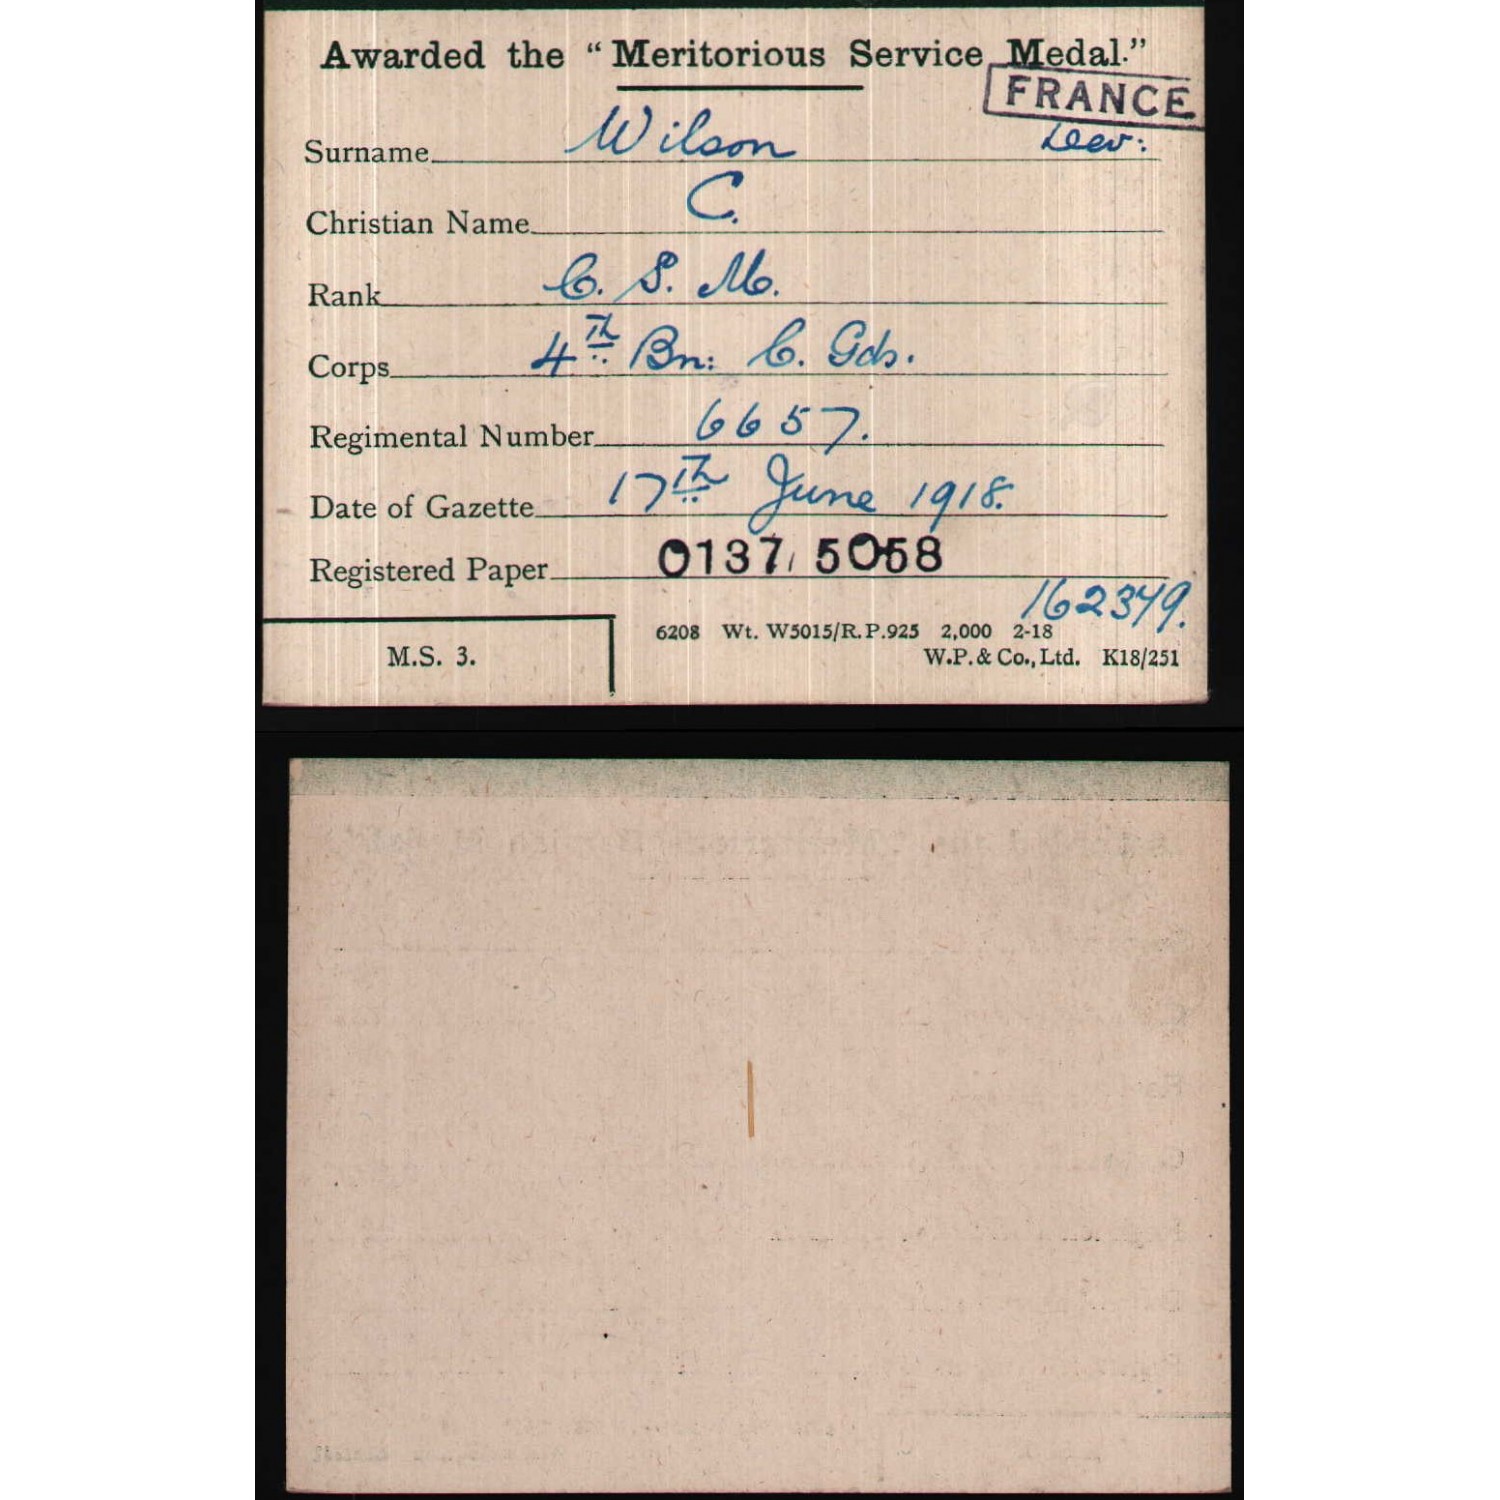 Awarded the "Meritorious Service Medal."
FRANCE
Surname Wilson
Christian Name C.
Rank C. S. M.
Corps 4th Bn: C. Gds.
Regimental Number 6657.
Date of Gazette 17th June 1918.
Registered Paper 0137/5058
162349.
M.S. 3.
6208 Wt. W5015/R.P.925 2,000 2-18
W.P. & Co., Ltd. K18/251